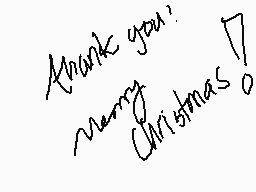 thank you!
Merry
Christmas!